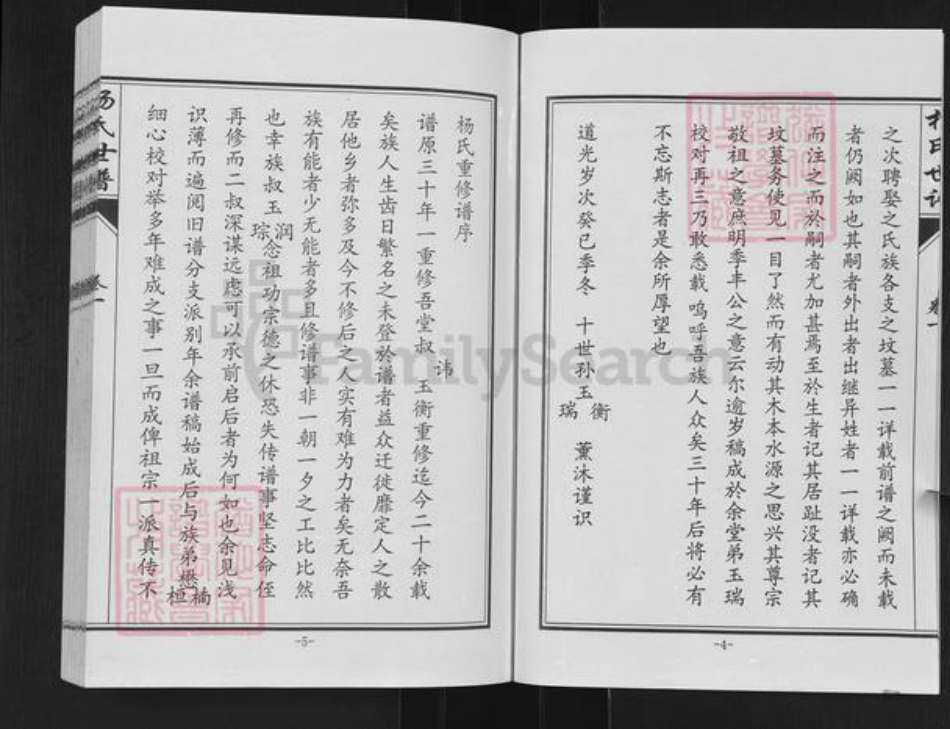 之次聘娶之氏族各支之坟墓一一详载前谱之阙而未载
者仍阙如也其嗣者外出者出继异姓者一一详载亦必确
而注之而於嗣者尤加甚焉至於生者记其居趾没者记其
坟墓务使见一目了然而有动其木本水源之思兴其尊宗
敬祖之意庶明季丰公之意云尔逾岁稿成於余堂弟玉瑞
校对再三乃敢悉载呜呼吾族人众矣三十年后将必有
不忘斯志者是余所厚望也
道光岁次癸巳季冬 十世孙玉衡瑞 薰沐谨识
-4-
杨氏世谱
卷一
杨氏重修谱序
谱原三十年一重修吾堂叔讳玉衡重修迄今二十余载
矣族人生齿日繁名之未登於谱者益众迁徙靡定人之散
居他乡者弥多及今不修后之人实有难为力者矣无奈吾
族有能者少无能者多且修谱事非一朝一夕之工比比然
也幸族叔玉润琮念祖功宗德之休恐失传谱事坚志命侄
再修而二叔深谋远虑可以承前启后者为何如也余见浅
识薄而遍阅旧谱分支派别年余谱稿始成后与族弟懋楠桓
细心校对举多年难成之事一旦而成俾祖宗一派真传不
-5-
FamilySearch